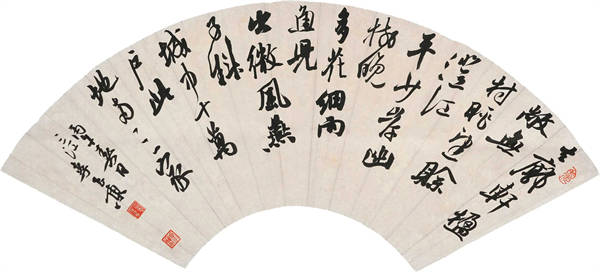 去廓軒楹
敞無
村眺望賒
澄江
平少岸幽
樹晚
多花細雨
魚兒
出微風燕
子斜
城中十萬
戶此
地兩三家